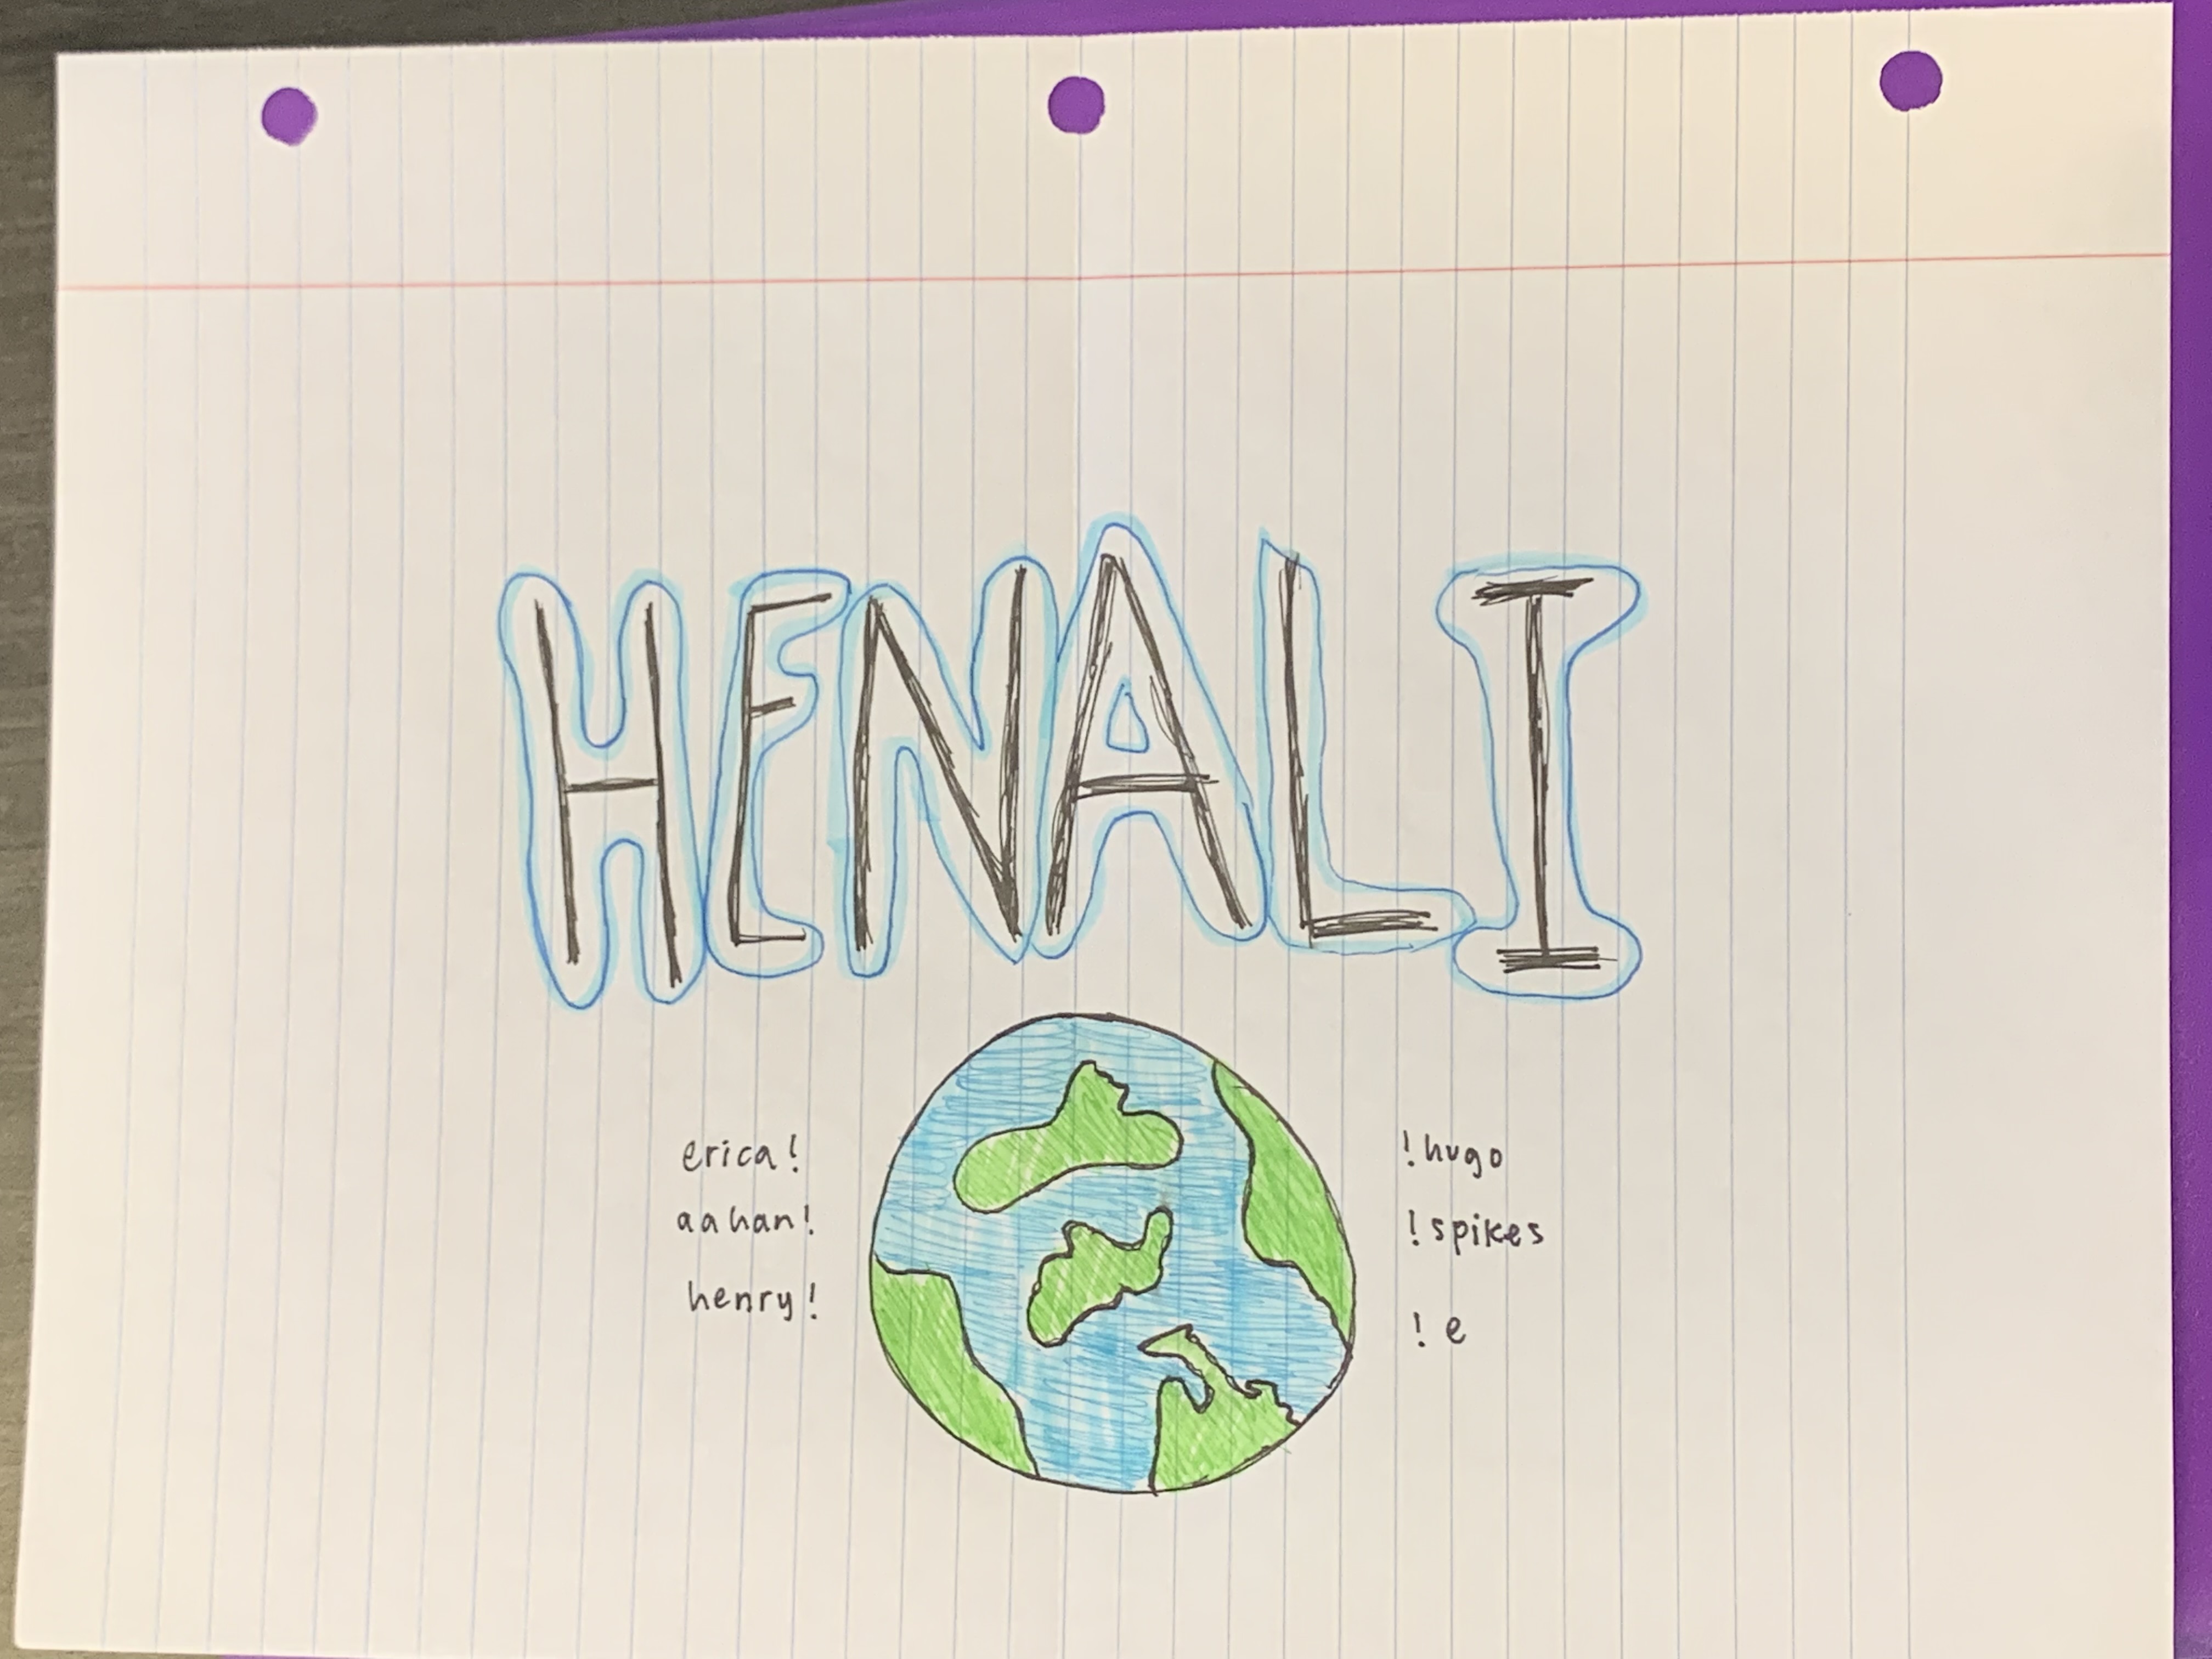 HENALI
erica!
aahan!
henry!
! hugo
! spikes
! e